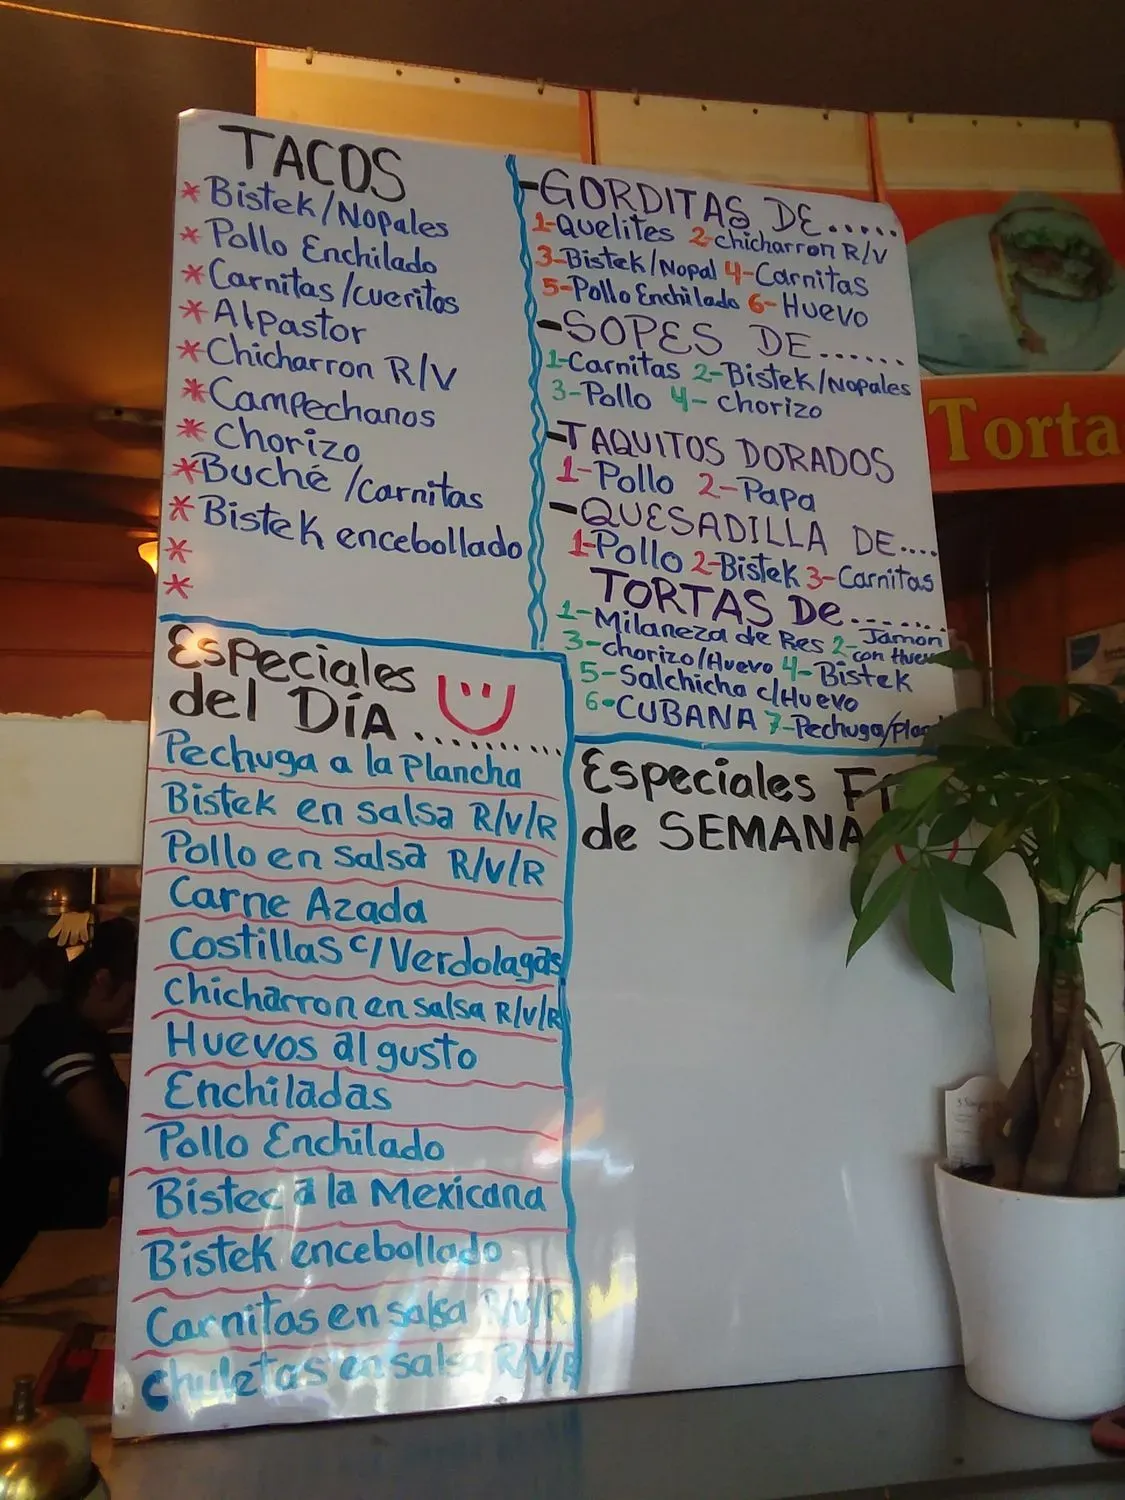 TACOS
* Bistek/Nopales
* Pollo Enchilado
* Carnitas/cueritos
* Alpastor
* Chicharron R/V
* Campechanos
* Chorizo
* Buché/carnitas
* Bistek encebollado
*
*
-GORDITAS DE.....
1-Quelites 2-chicharron R/V
3-Bistek/Nopal 4-Carnitas
5-Pollo Enchilado 6-Huevo
-SOPES DE......
1-Carnitas 2-Bistek/Nopales
3-Pollo 4-chorizo
-TAQUITOS DORADOS
1-Pollo 2-Papa
-QUESADILLA DE....
1-Pollo 2-Bistek 3-Carnitas
TORTAS De.......
1-Milaneza de Res 2-Jamon
con
3-chorizo/Huevo 4-Bistek
5-Salchicha c/Huevo
6-CUBANA 7-Pechuga/
Especiales
del DÍA..........
Pechuga a la Plancha
Bistek en salsa R/V/R
Pollo en salsa R/V/R
Carne Azada
Costillas c/Verdolagas
Chicharron en salsa R/V/R
Huevos al gusto
Enchiladas
Pollo Enchilado
Bistec a la Mexicana
Bistek encebollado
Carnitas en salsa R/V/R
Chuletas en salsa R/V/R
Especiales
de SEMANA
Torta